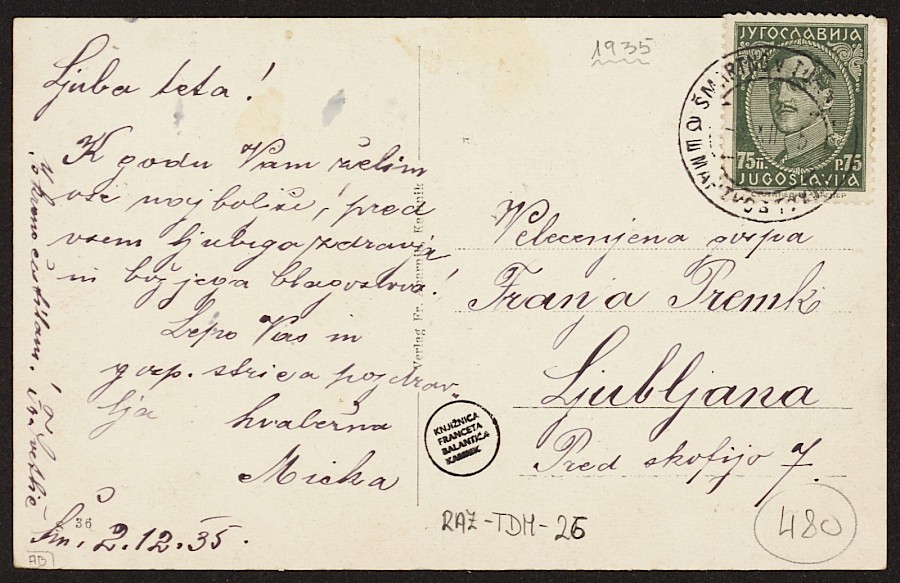 Ljuba teta!
K godu Vam želim
vse najboljše, pred
vsem ljubega zdravja
in božjega blagoslova!
Lepo Vas in
gosp. strica pozdrav
lja hvaležna
Micka
Šm, 2.12.35.
Iskreno čestitam.
36
AB
Verlag Fr. Kamnik
1935
ЈУГОСЛАВИЈА
75п. P.75
JUGOSLAVIJA
Velecenjena gospa
Franja Premk
Ljubljana
Pred škofijo 7.
KNJIŽNICA
FRANCETA
BALANTIČA
KAMNIK
RAZ-TDM-26
480